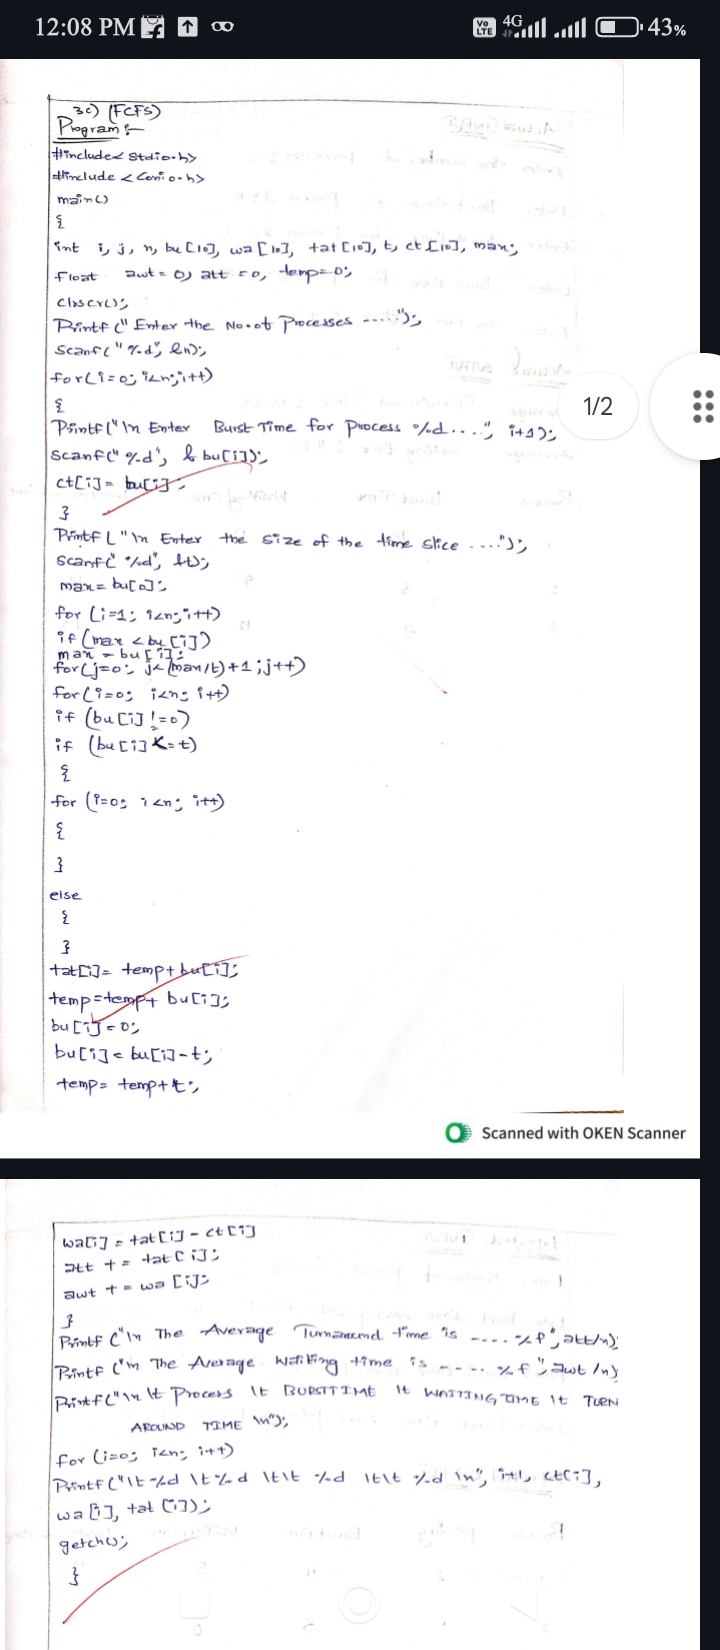 12:08 PM
Vo LTE 4G 43%
3c) (FCFS)
Program :-
#include< stdio.h>
#include < conio.h>
main()
{
int i, j, n, bu [10], wa [10], tat [10], t, ct [10], max;
float awt = 0, att = 0, temp=0;
clrscr();
Printf (" Enter the No.of Processes -----");
scanf(" %d", &n);
for(i=0; i<n;i++)
{
Printf("\n Enter Burst Time for Process %d ....", i+1);
scanf(" %d", & bu[i]);
ct[i]= bu[i];
}
Printf ("\n Enter the size of the time slice ....");
scanf(" %d", &t);
max= bu[0];
for (i=1; i<n;i++)
if (max < bu [i])
max = bu [i];
for(j=0; j< (max/t)+1;j++)
for(i=0; i<n; i++)
if (bu [i] !=0)
if (bu [i] <=t)
{
for (i=0; i <n; i++)
{
}
else
{
}
tat[i]= temp+bu[i];
temp=temp+ bu[i];
bu [i]=0;
bu[i]= bu[i]-t;
temp= temp+t;
1/2
Scanned with OKEN Scanner
wa[i] = tat[i] - ct[i]
att += tat [i];
awt += wa [i];
}
Printf ("\n The Average Turnaround time is ---- %f", att/n);
Printf ("\n The Average Waiting time is ---- %f", awt /n);
Printf("\n \t Process \t BURSTTIME \t WAITING TIME \t TURN
AROUND TIME \n");
for (i=0; i<n; i++)
Printf ("\t %d \t %d \t\t %d \t\t %d \n", i+1, ct[i],
wa [i], tat [i]);
getch();
}